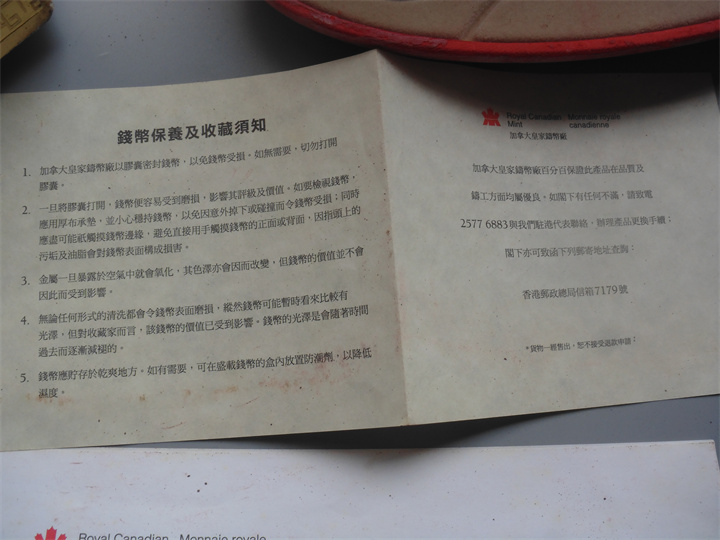 錢幣保養及收藏須知
1. 加拿大皇家鑄幣廠以膠囊密封錢幣，以免錢幣受損。如無需要，切勿打開
膠囊。
2. 一旦將膠囊打開，錢幣便容易受到磨損，影響其評級及價值。如要檢視錢幣，
應用厚布承墊，並小心穩持錢幣，以免因意外掉下或碰撞而令錢幣受損；同時
應盡可能祇觸摸錢幣邊緣，避免直接用手觸摸錢幣的正面或背面，因指頭上的
污垢及油脂會對錢幣表面構成損害。
3. 金屬一旦暴露於空氣中就會氧化，其色澤亦會因而改變，但錢幣的價值並不會
因此而受到影響。
4. 無論任何形式的清洗都會令錢幣表面磨損，縱然錢幣可能暫時看來比較有
光澤，但對收藏家而言，該錢幣的價值已受到影響。錢幣的光澤是會隨著時間
過去而逐漸減褪的。
5. 錢幣應貯存於乾爽地方。如有需要，可在盛載錢幣的盒內放置防潮劑，以降低
濕度。
Royal Canadian Monnaie royale
Mint canadienne
加拿大皇家鑄幣廠
加拿大皇家鑄幣廠百分百保證此產品在品質及
鑄工方面均屬優良。如閣下有任何不滿，請致電
2577 6883與我們駐港代表聯絡，辦理產品更換手續；
閣下亦可致函下列郵寄地址查詢：
香港郵政總局信箱7179號
*貨物一經售出，恕不接受退款申請；
Royal Canadian Monnaie royale